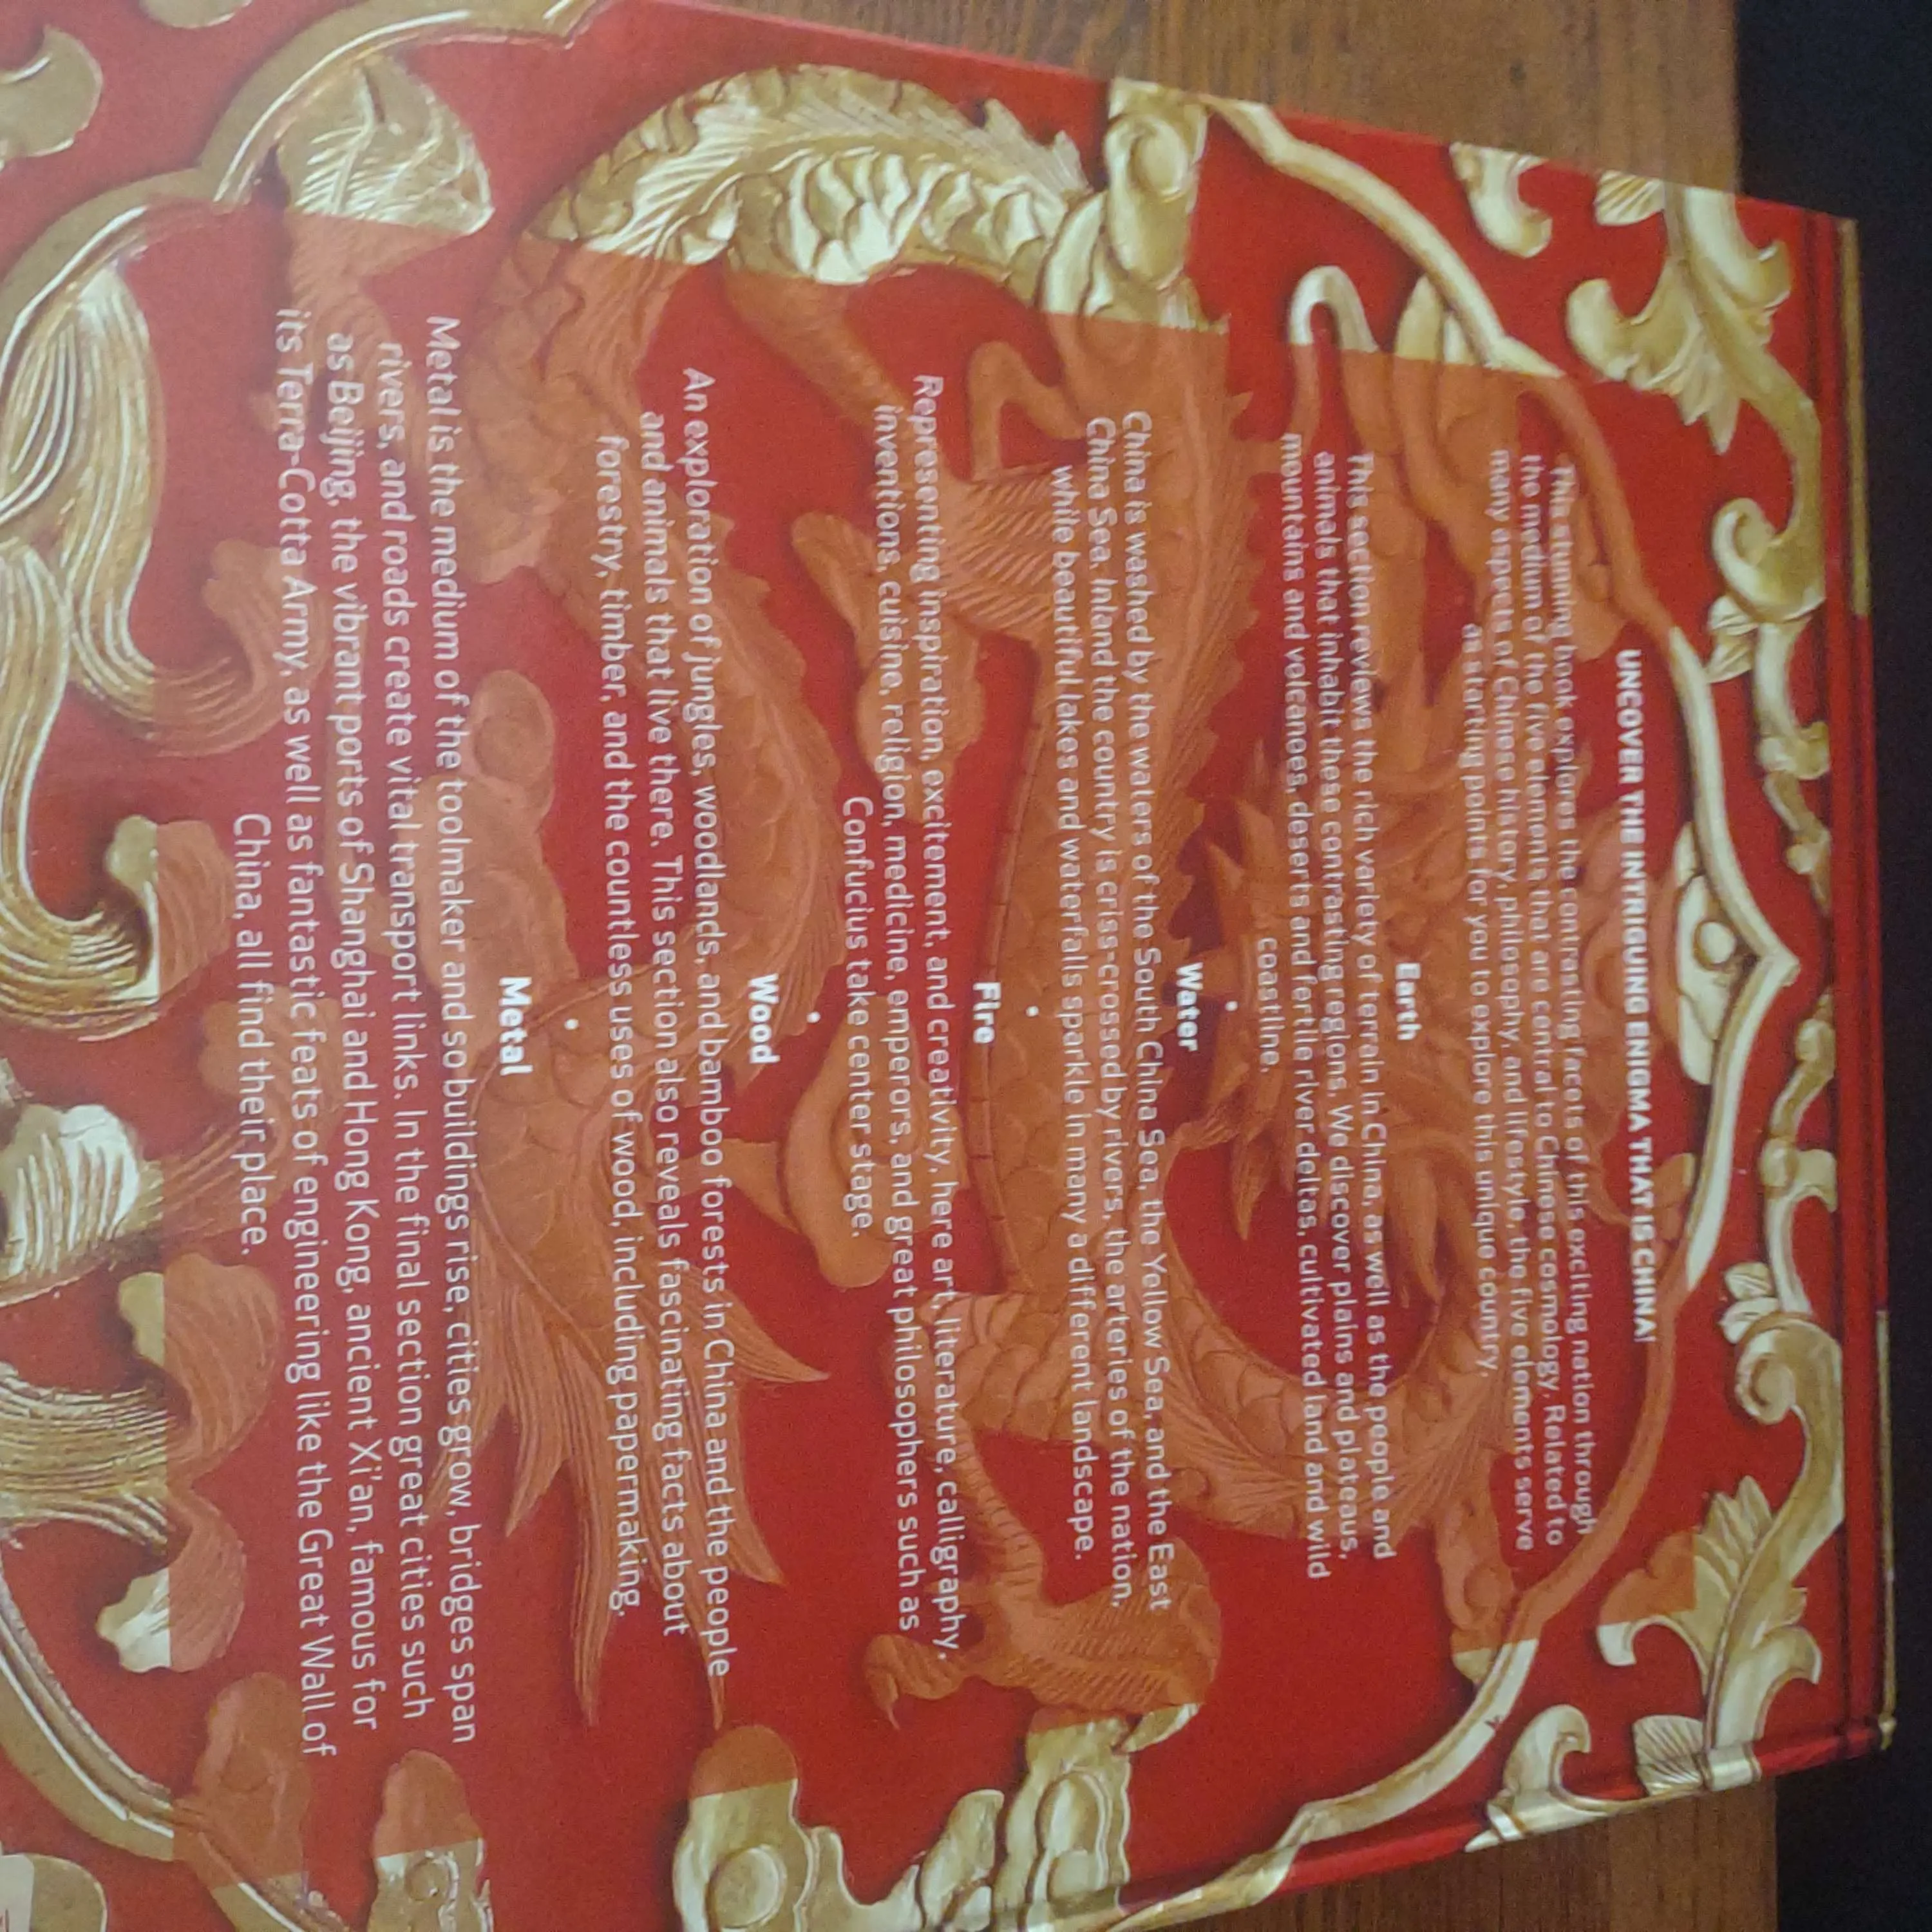 UNCOVER THE INTRIGUING ENIGMA THAT IS CHINA!
This stunning book explores the contrasting facets of this exciting nation through
the medium of the five elements that are central to Chinese cosmology. Related to
many aspects of Chinese history, philosophy, and lifestyle, the five elements serve
as starting points for you to explore this unique country.
Earth
This section reviews the rich variety of terrain in China, as well as the people and
animals that inhabit these contrasting regions. We discover plains and plateaous,
mountains and volcanoes, deserts and fertile river deltas, cultivated land and wild
coastline.
•
Water
China is washed by the waters of the South China Sea, the Yellow Sea, and the East
China Sea. Inland the country is criss-crossed by rivers, the arteries of the nation,
while beautiful lakes and waterfalls sparkle in many a different landscape.
•
Fire
Representing inspiration, excitement, and creativity, here art, literature, calligraphy,
inventions, cuisine, religion, medicine, emperors, and great philosophers such as
Confucius take center stage.
•
Wood
An exploration of jungles, woodlands, and bamboo forests in China and the people
and animals that live there. This section also reveals fascinating facts about
forestry, timber, and the countless uses of wood, including papermaking.
•
Metal
Metal is the medium of the toolmaker and so buildings rise, cities grow, bridges span
rivers, and roads create vital transport links. In the final section great cities such
as Beijing, the vibrant ports of Shanghai and Hong Kong, ancient Xi'an, famous for
its Terra-Cotta Army, as well as fantastic feats of engineering like the Great Wall of
China, all find their place.